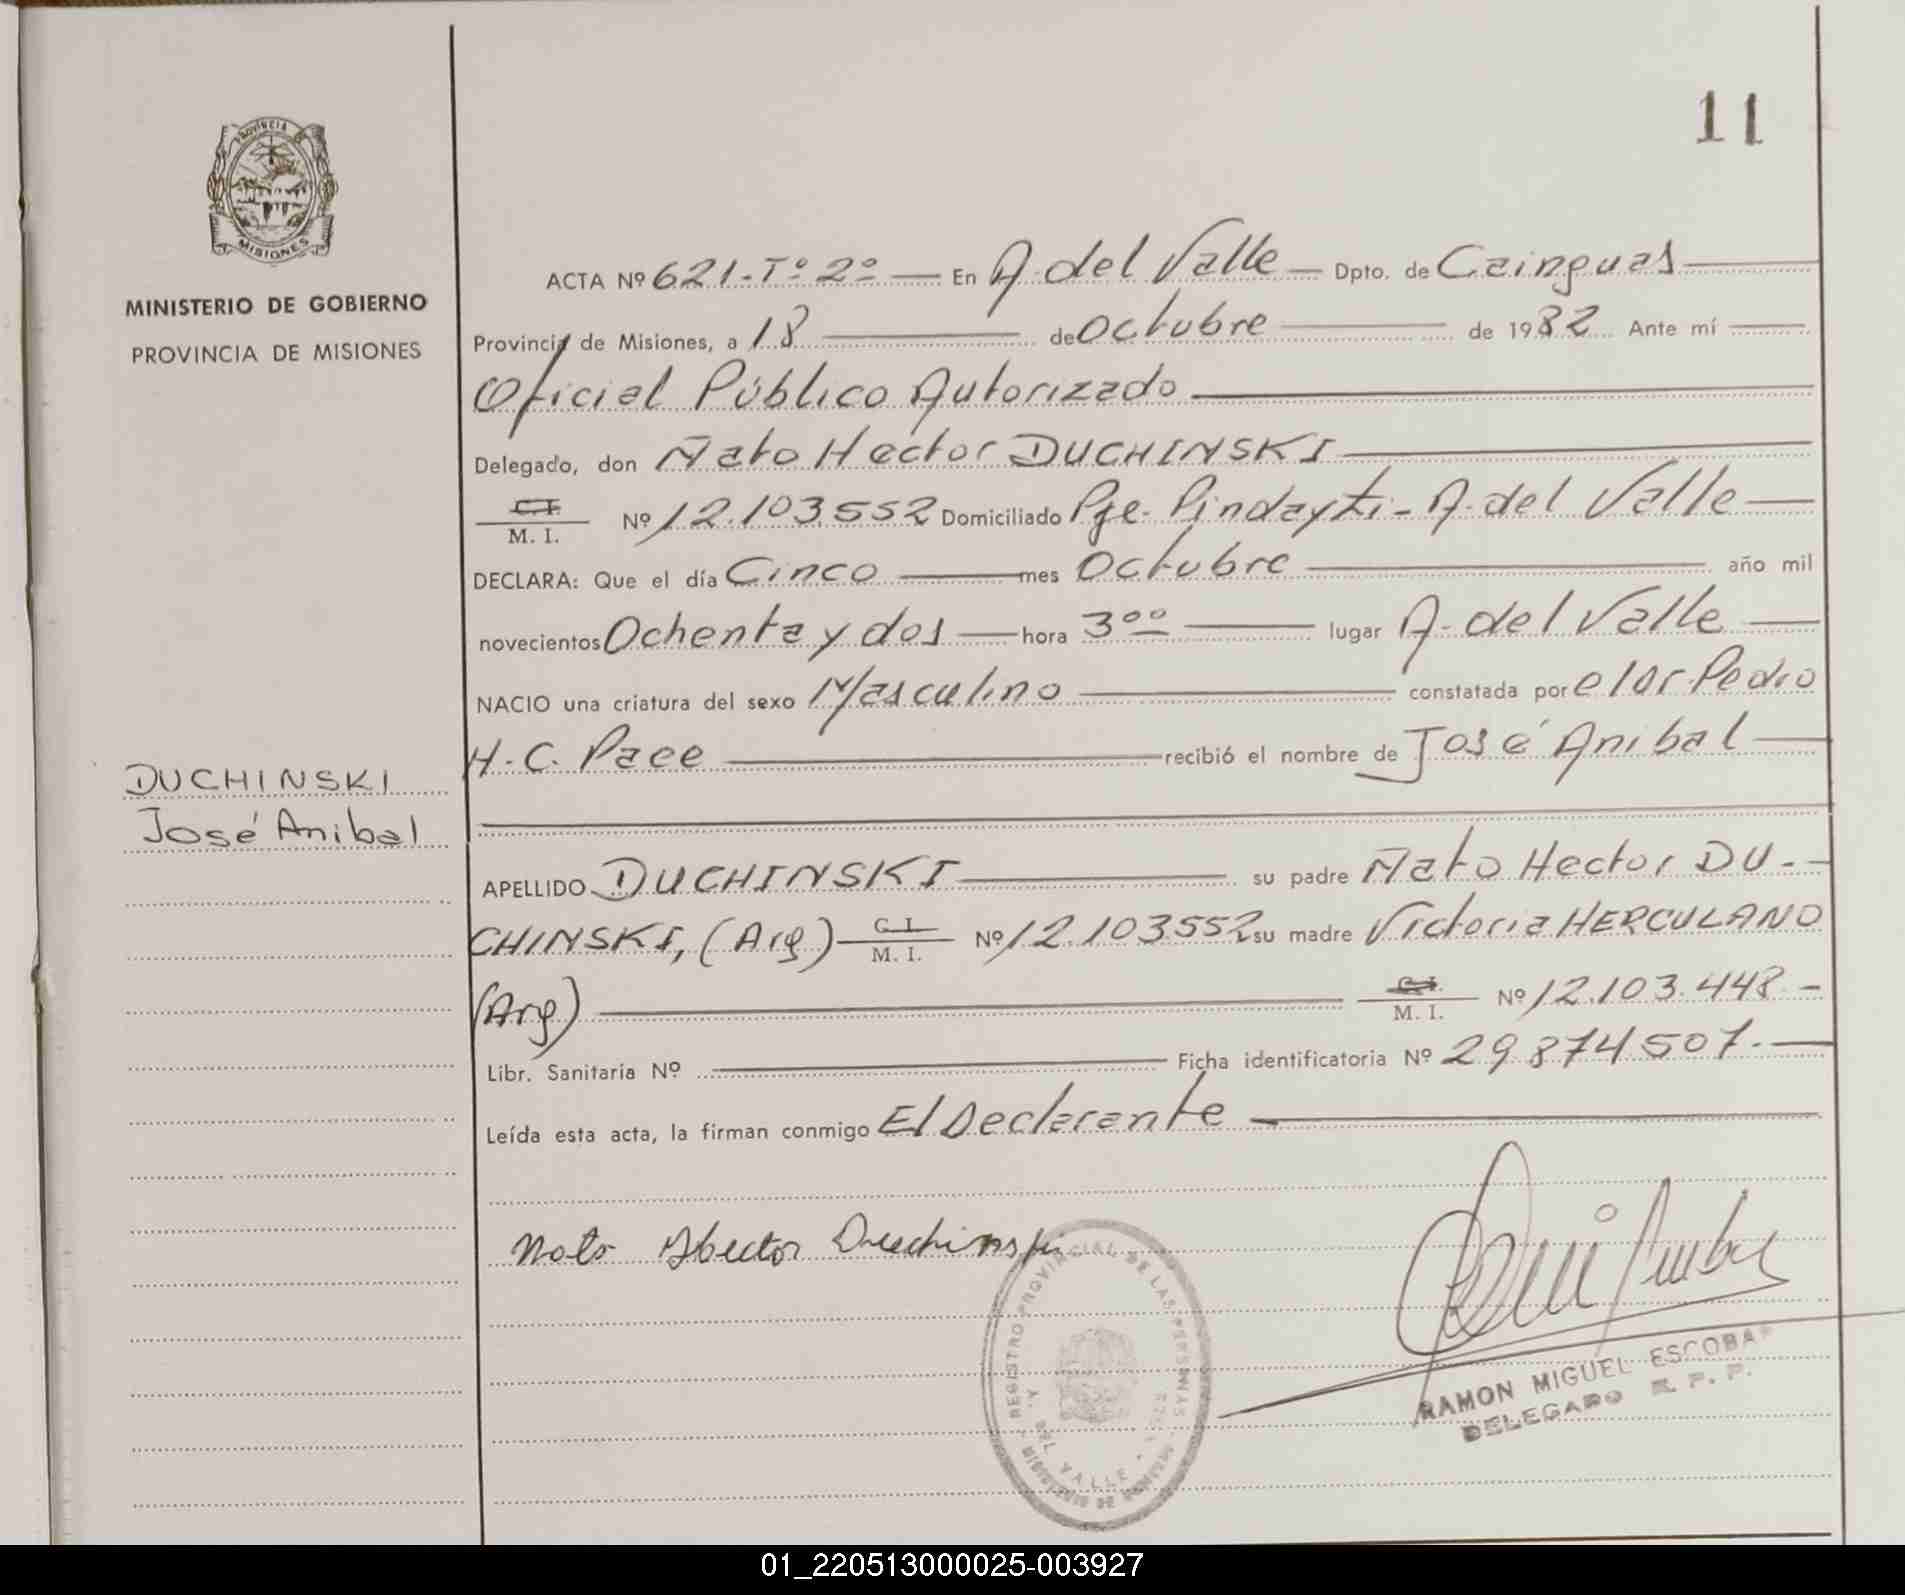 11
PROVINCIA
MISIONES
MINISTERIO DE GOBIERNO
PROVINCIA DE MISIONES
ACTA Nº 621-Tº 2º — En A. del Valle — Dpto. de Cainguas
Provincia de Misiones, a 18 de Octubre de 1982 Ante mí
Oficial Público Autorizado
Delegado, don Ñato Hector DUCHINSKI
C.I.
M. I. Nº 12.103.552 Domiciliado Pje. Pindayti - A. del Valle
DECLARA: Que el día Cinco mes Octubre año mil
novecientos Ochenta y dos hora 3ºº lugar A. del Valle
NACIO una criatura del sexo Masculino constatada por el Dr. Pedro
H. C. Pace recibió el nombre de José Anibal
DUCHINSKI
José Anibal
APELLIDO DUCHINSKI su padre Ñato Hector DU-
CHINSKI, (Arg) C. I.
M. I. Nº 12.103552 su madre Victoria HERCULANO
(Arg) C. I.
M. I. Nº 12.103.448 -
Libr. Sanitaria Nº Ficha identificatoria Nº 29874507.
Leída esta acta, la firman conmigo El Declarante
Nato Hector Duchinski
REGISTRO PROVINCIAL DE LAS PERSONAS
DEL VALLE
RAMON MIGUEL ESCOBAR
DELEGADO R. P. P.
01_220513000025-003927